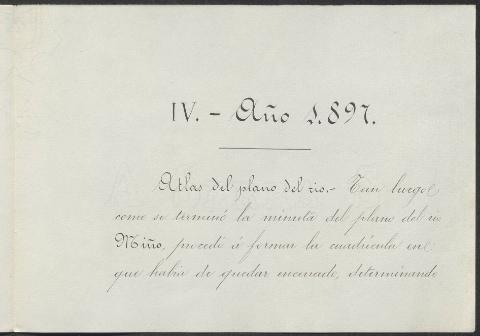 IV. - Año 1.897.
Atlas del plano del rio.- Tan luego
como se terminó la minuta del plano del rio
Miño, procedí á formar la cuadrícula en
que habia de quedar encerrado, determinando